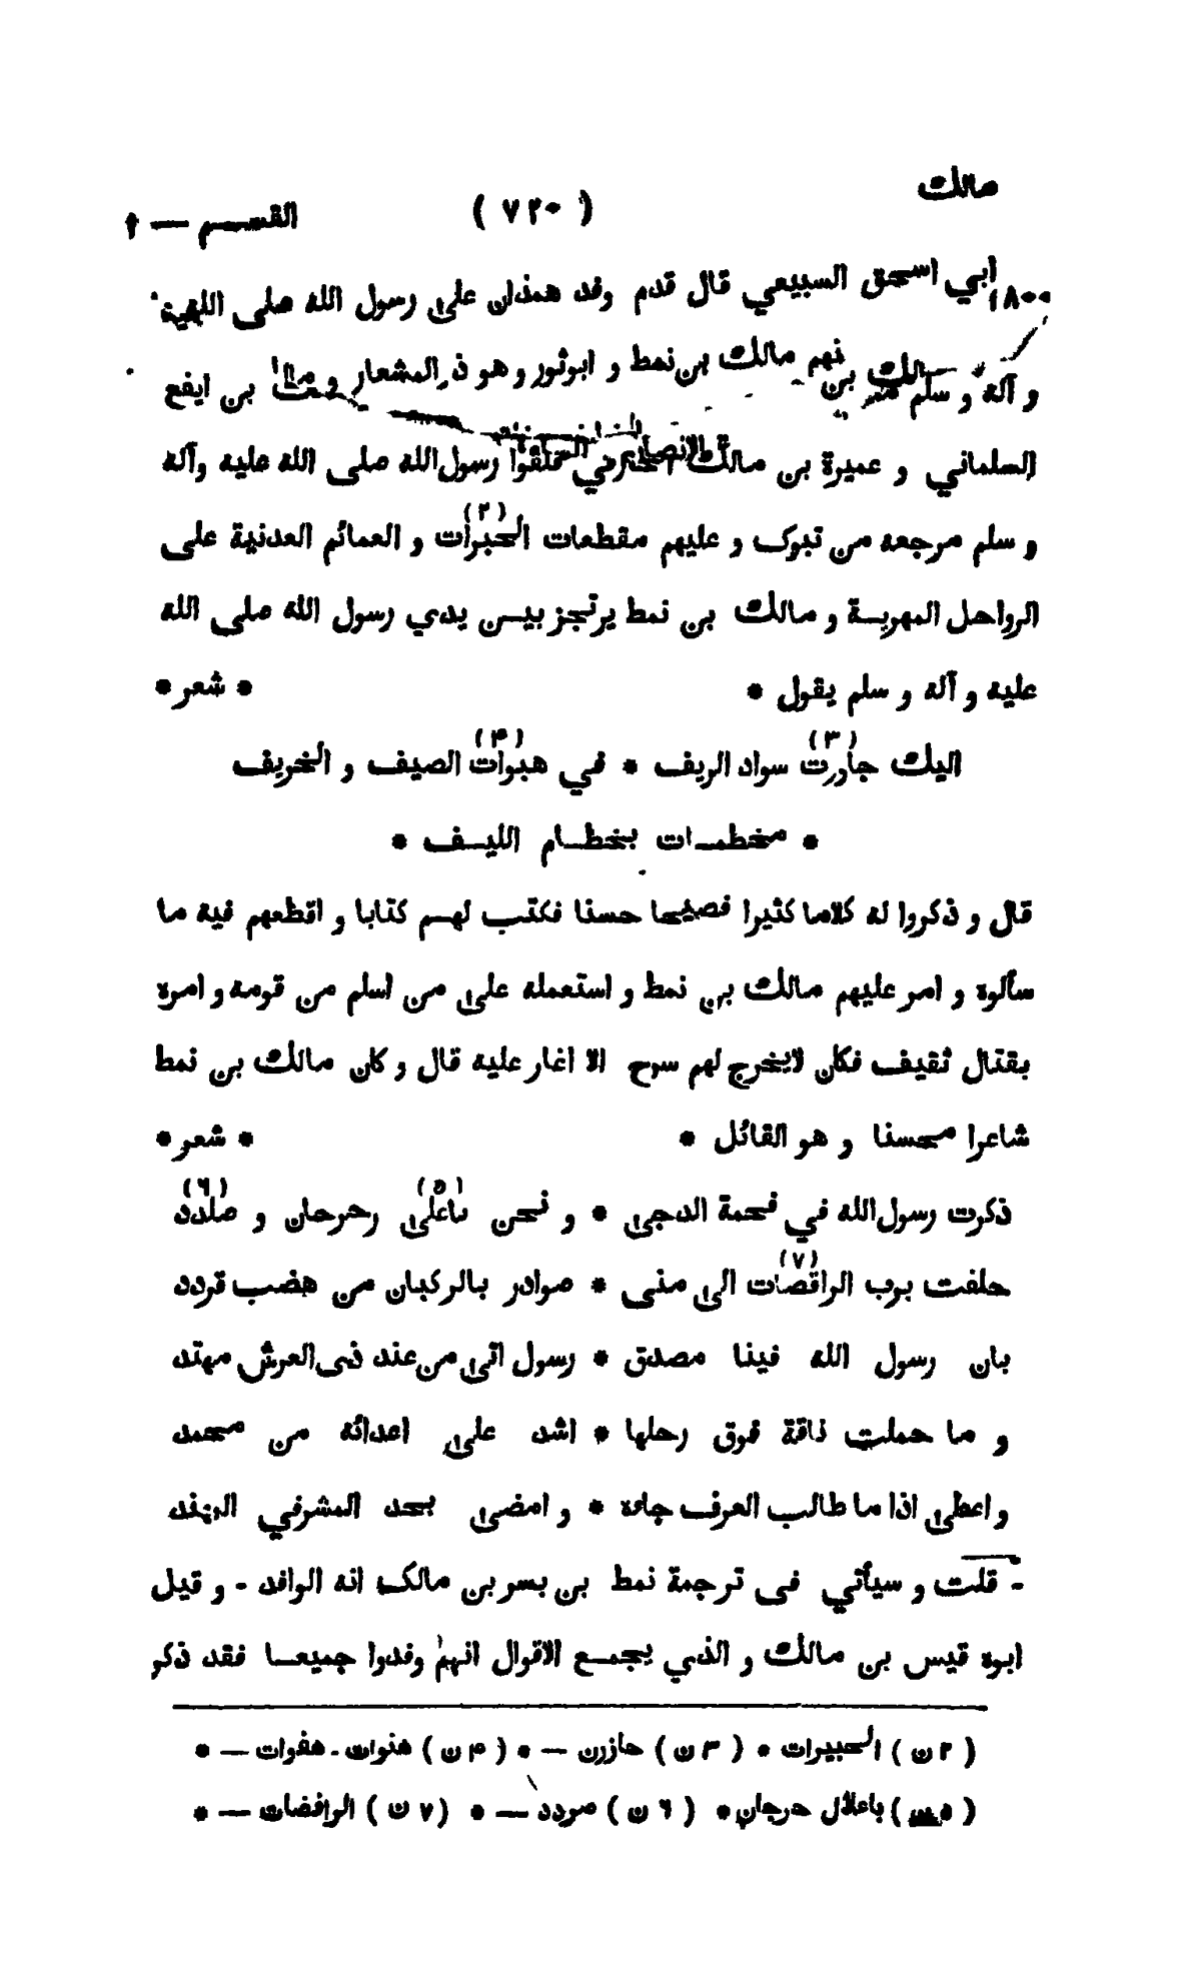 مالك
( ٧٢٠ )
القسم — ١
ابي اسحق السبيعي قال قدم وفد همذان على رسول الله صلى الله
و آله و سلم منهم مالك بن نمط و ابو ثور و هو ذو المشعار و بن ايفع
السلماني و عميرة بن مالك فلقوا رسول الله صلى الله عليه وآله
و سلم مرجعه من تبوك و عليهم مقطعات الحبرات (٢) و العمائم العدنية على
الرواحل المهرية و مالك بن نمط يرتجز بين يدي رسول الله صلى الله
عليه و آله و سلم يقول * * شعر *
اليك جاورت (٣) سواد الريف * في هبوات (۴) الصيف و الخريف
* مخطمات بخطام الليف *
قال و ذكروا له كلاما كثيرا فصيحا حسنا فكتب لهم كتابا و اقطعهم فيه ما
سألوه و امر عليهم مالك بن نمط و استعمله على من اسلم من قومه و امره
بقتال ثقيف فكان لايخرج لهم سرح الا اغار عليه قال و كان مالك بن نمط
شاعرا محسنا و هو القائل * * شعر *
ذكرت رسول الله في فحمة الدجى * و نحن باعلى (٥) رحرحان و صلدد (٦)
حلفت برب الراقصات (٧) الى منى * صوادر بالركبان من هضب قردد
بان رسول الله فينا مصدق * رسول اتى من عند ذى العرش مهتد
و ما حملت ناقة فوق رحلها * اشد على اعدائه من محمد
و اعطى اذا ما طالب العرف جاءه * و امضى بحد المشرفي المهند
- قلت و سيأتي فى ترجمة نمط بن بسر بن مالك انه الوافد - و قيل
ابوه قيس بن مالك و الذي يجمع الاقوال انهم وفدوا جميعا فقد ذكر
( ٢ ن ) الحبيرات * ( ٣ ن ) حازرن — * ( ۴ ن ) هنوات - هفوات — *
( ٥ ) باعلال حرجان * ( ٦ ن ) صردد — * ( ٧ ن ) الرافضات — *